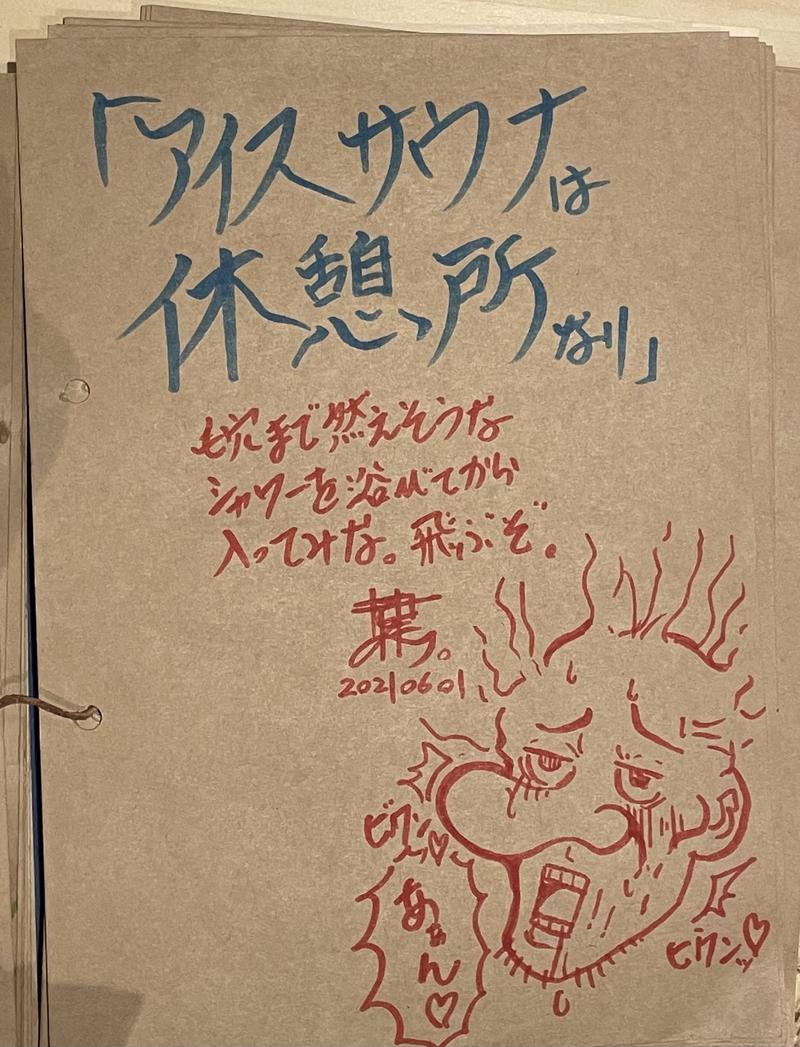 「アイスサウナは
休憩所なり」
毛穴まで燃えそうな
シャワーを浴びてから
入ってみな。飛ぶぞ。
20210601
ビクンッ♡
あぁん♡
ビクンッ♡